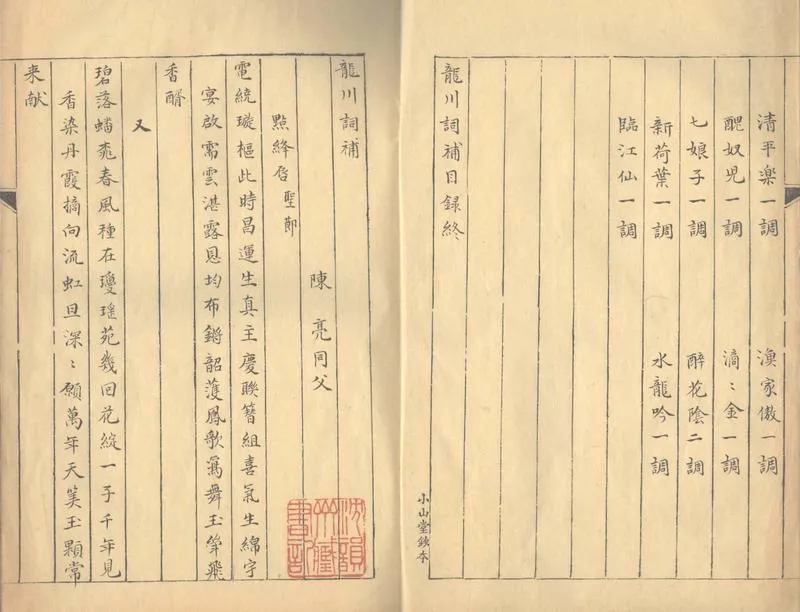 清平楽一調 漁家傲一調
醜奴兒一調 滴〻金一調
七娘子一調 醉花陰二調
新荷葉一調 水龍吟一調
臨江仙一調
龍川詞補目録終
小山堂鈔本
龍川詞補
陳亮同父
點絳唇 聖節
電繞璇樞此時昌運生真主慶聯簪組喜氣生綿宇
宴啟需雲湛露恩均布鏘韶頀鳳歌鸞舞玉斝飛
香醑
又
碧落蟠桃春風種在瓊瑤苑幾回花綻一子千年見
香染丹霞摘向流虹旦深〻願萬年天筭玉顆常
来献